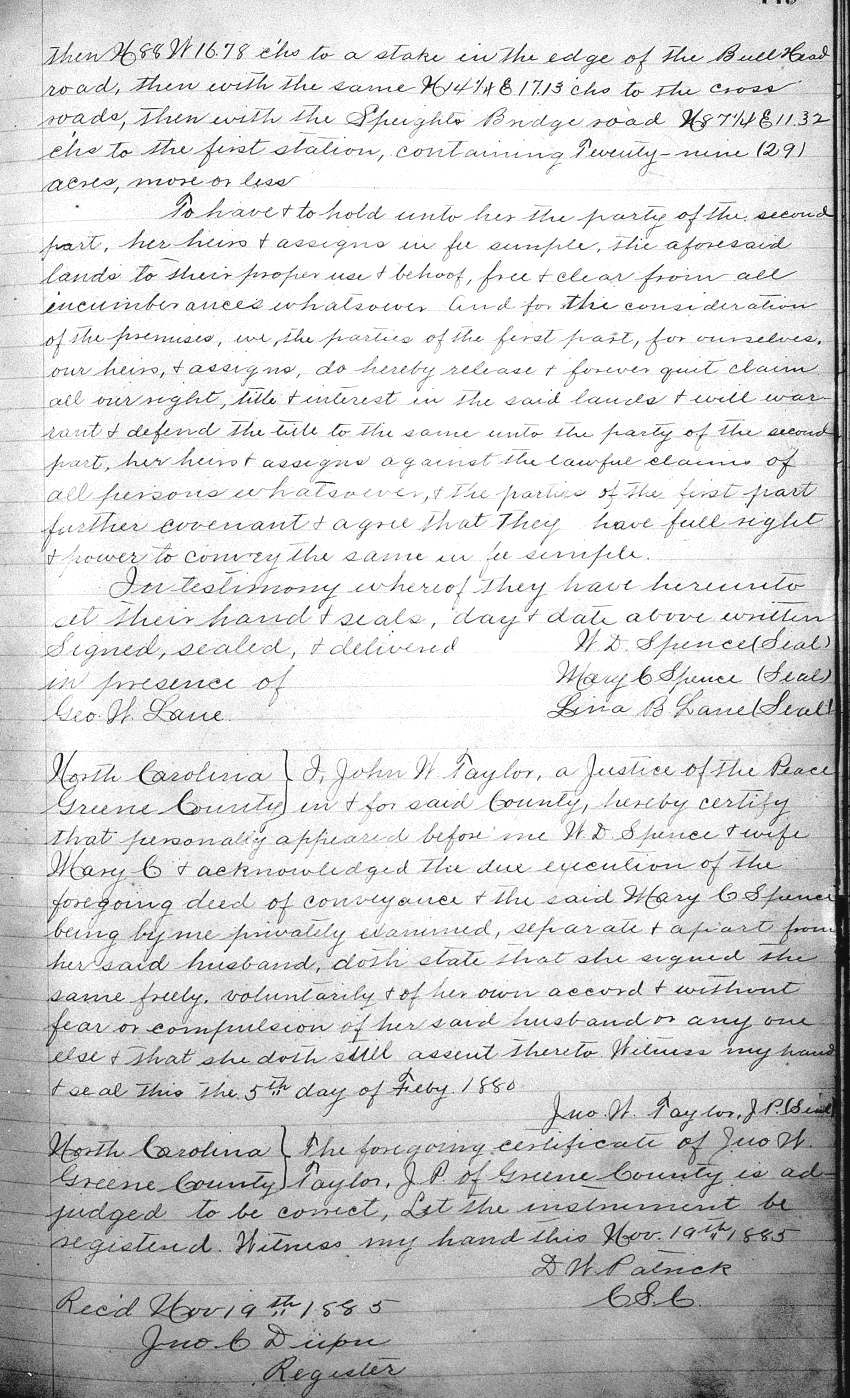 then N 88 W 16.78 chs to a stake in the edge of the Bull Head
road, then with the same N 14 1/4 E 17.13 chs to the cross
roads, then with the Speights Bridge road E 11.32
chs to the first station, containing Twenty-nine (29)
acres, more or less
To have & to hold unto her the party of the second
part, her heirs & assigns in fee simple, the aforesaid
lands to their proper use & behoof, free & clear from all
encumberances whatsoever And for the consideration
of the premises, we, the parties of the first part, for ourselves,
our heirs, & assigns, do hereby release & forever quit claim
all our right, title & interest in the said lands & will war-
rant & defend the title to the same unto the party of the second
part, her heirs & assigns against the lawful claims of
all persons whatsoever, & the parties of the first part
further covenant & agree that they have full right
& power to convey the same in fee simple.
In testimony whereof they have hereunto
set their hand & seals, day & date above written
Signed, sealed, & delivered W. D. Spence (Seal)
in presence of Mary C Spence (Seal)
Geo. W. Lane. Lina B Lane (Seal)
North Carolina } I, John W. Taylor, a Justice of the Peace
Greene County } in & for said County, hereby certify
that personally appeared before me W. D. Spence & wife
Mary C & acknowledged the due execution of the
foregoing deed of conveyance & the said Mary C Spence
being by me privately examined, separate & apart from
her said husband, doth state that she signed the
same freely, voluntarily & of her own accord & without
fear or compulsion of her said husband or any one
else & that she doth still assent thereto Witness my hand
& seal this the 5th day of Feby. 1880
Jno. W. Taylor, J. P. (Seal)
North Carolina } The foregoing certificate of Jno W.
Greene County } Taylor, J. P. of Greene County is ad-
judged to be correct, Let the instrument be
registered. Witness my hand this Nov. 19th 1885
D W Patrick
C S C
Rec'd Nov 19th 1885
Jno. C Dixon
Register